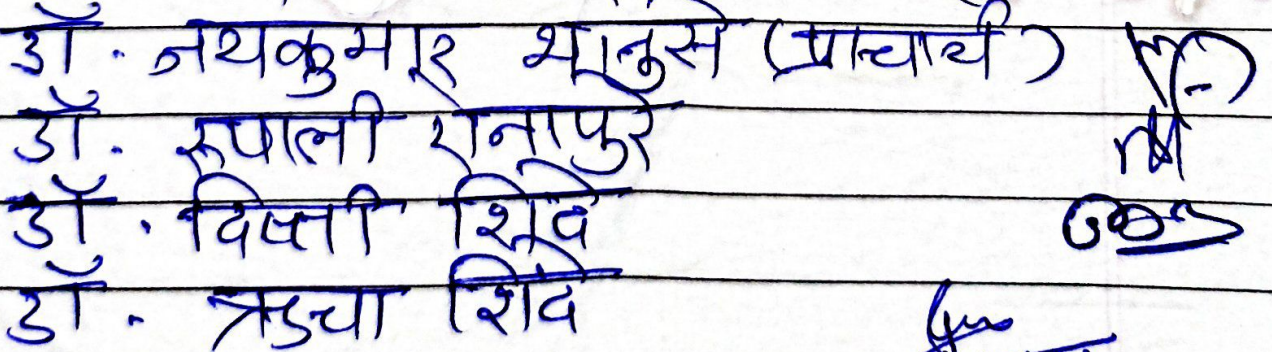 डॉ. जयकुमार भानुसे (प्राचार्य)
डॉ. रूपाली रोनापुरे
डॉ. दिप्ती शिंदे
डॉ. ऋचा शिंदे